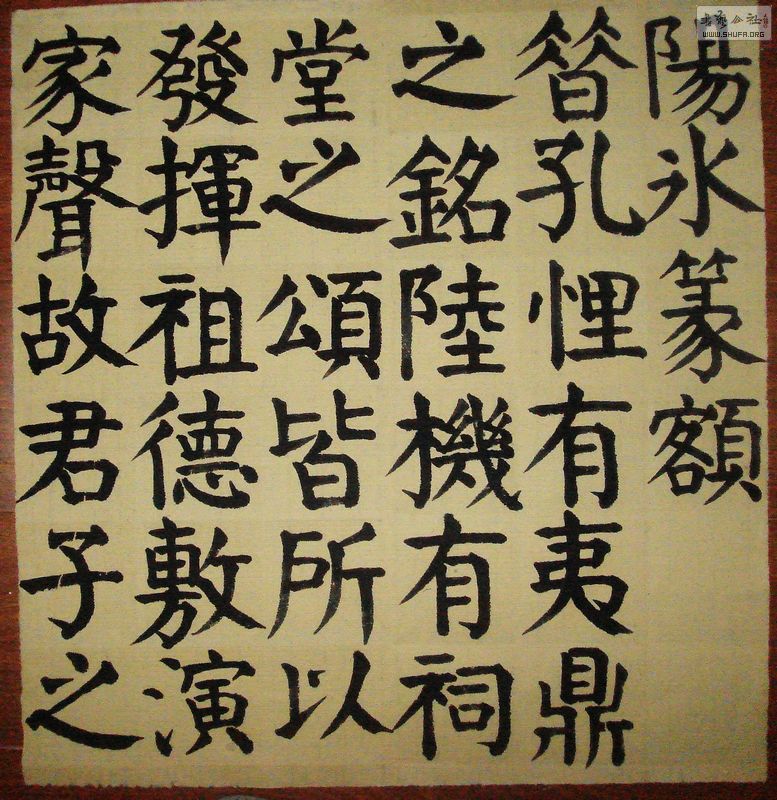 陽氷篆額
昝孔悝有夷鼎
之銘陸機有祠
堂之頌皆所以
發揮祖德敷演
家聲故君子之
WWW.SHUFA.ORG